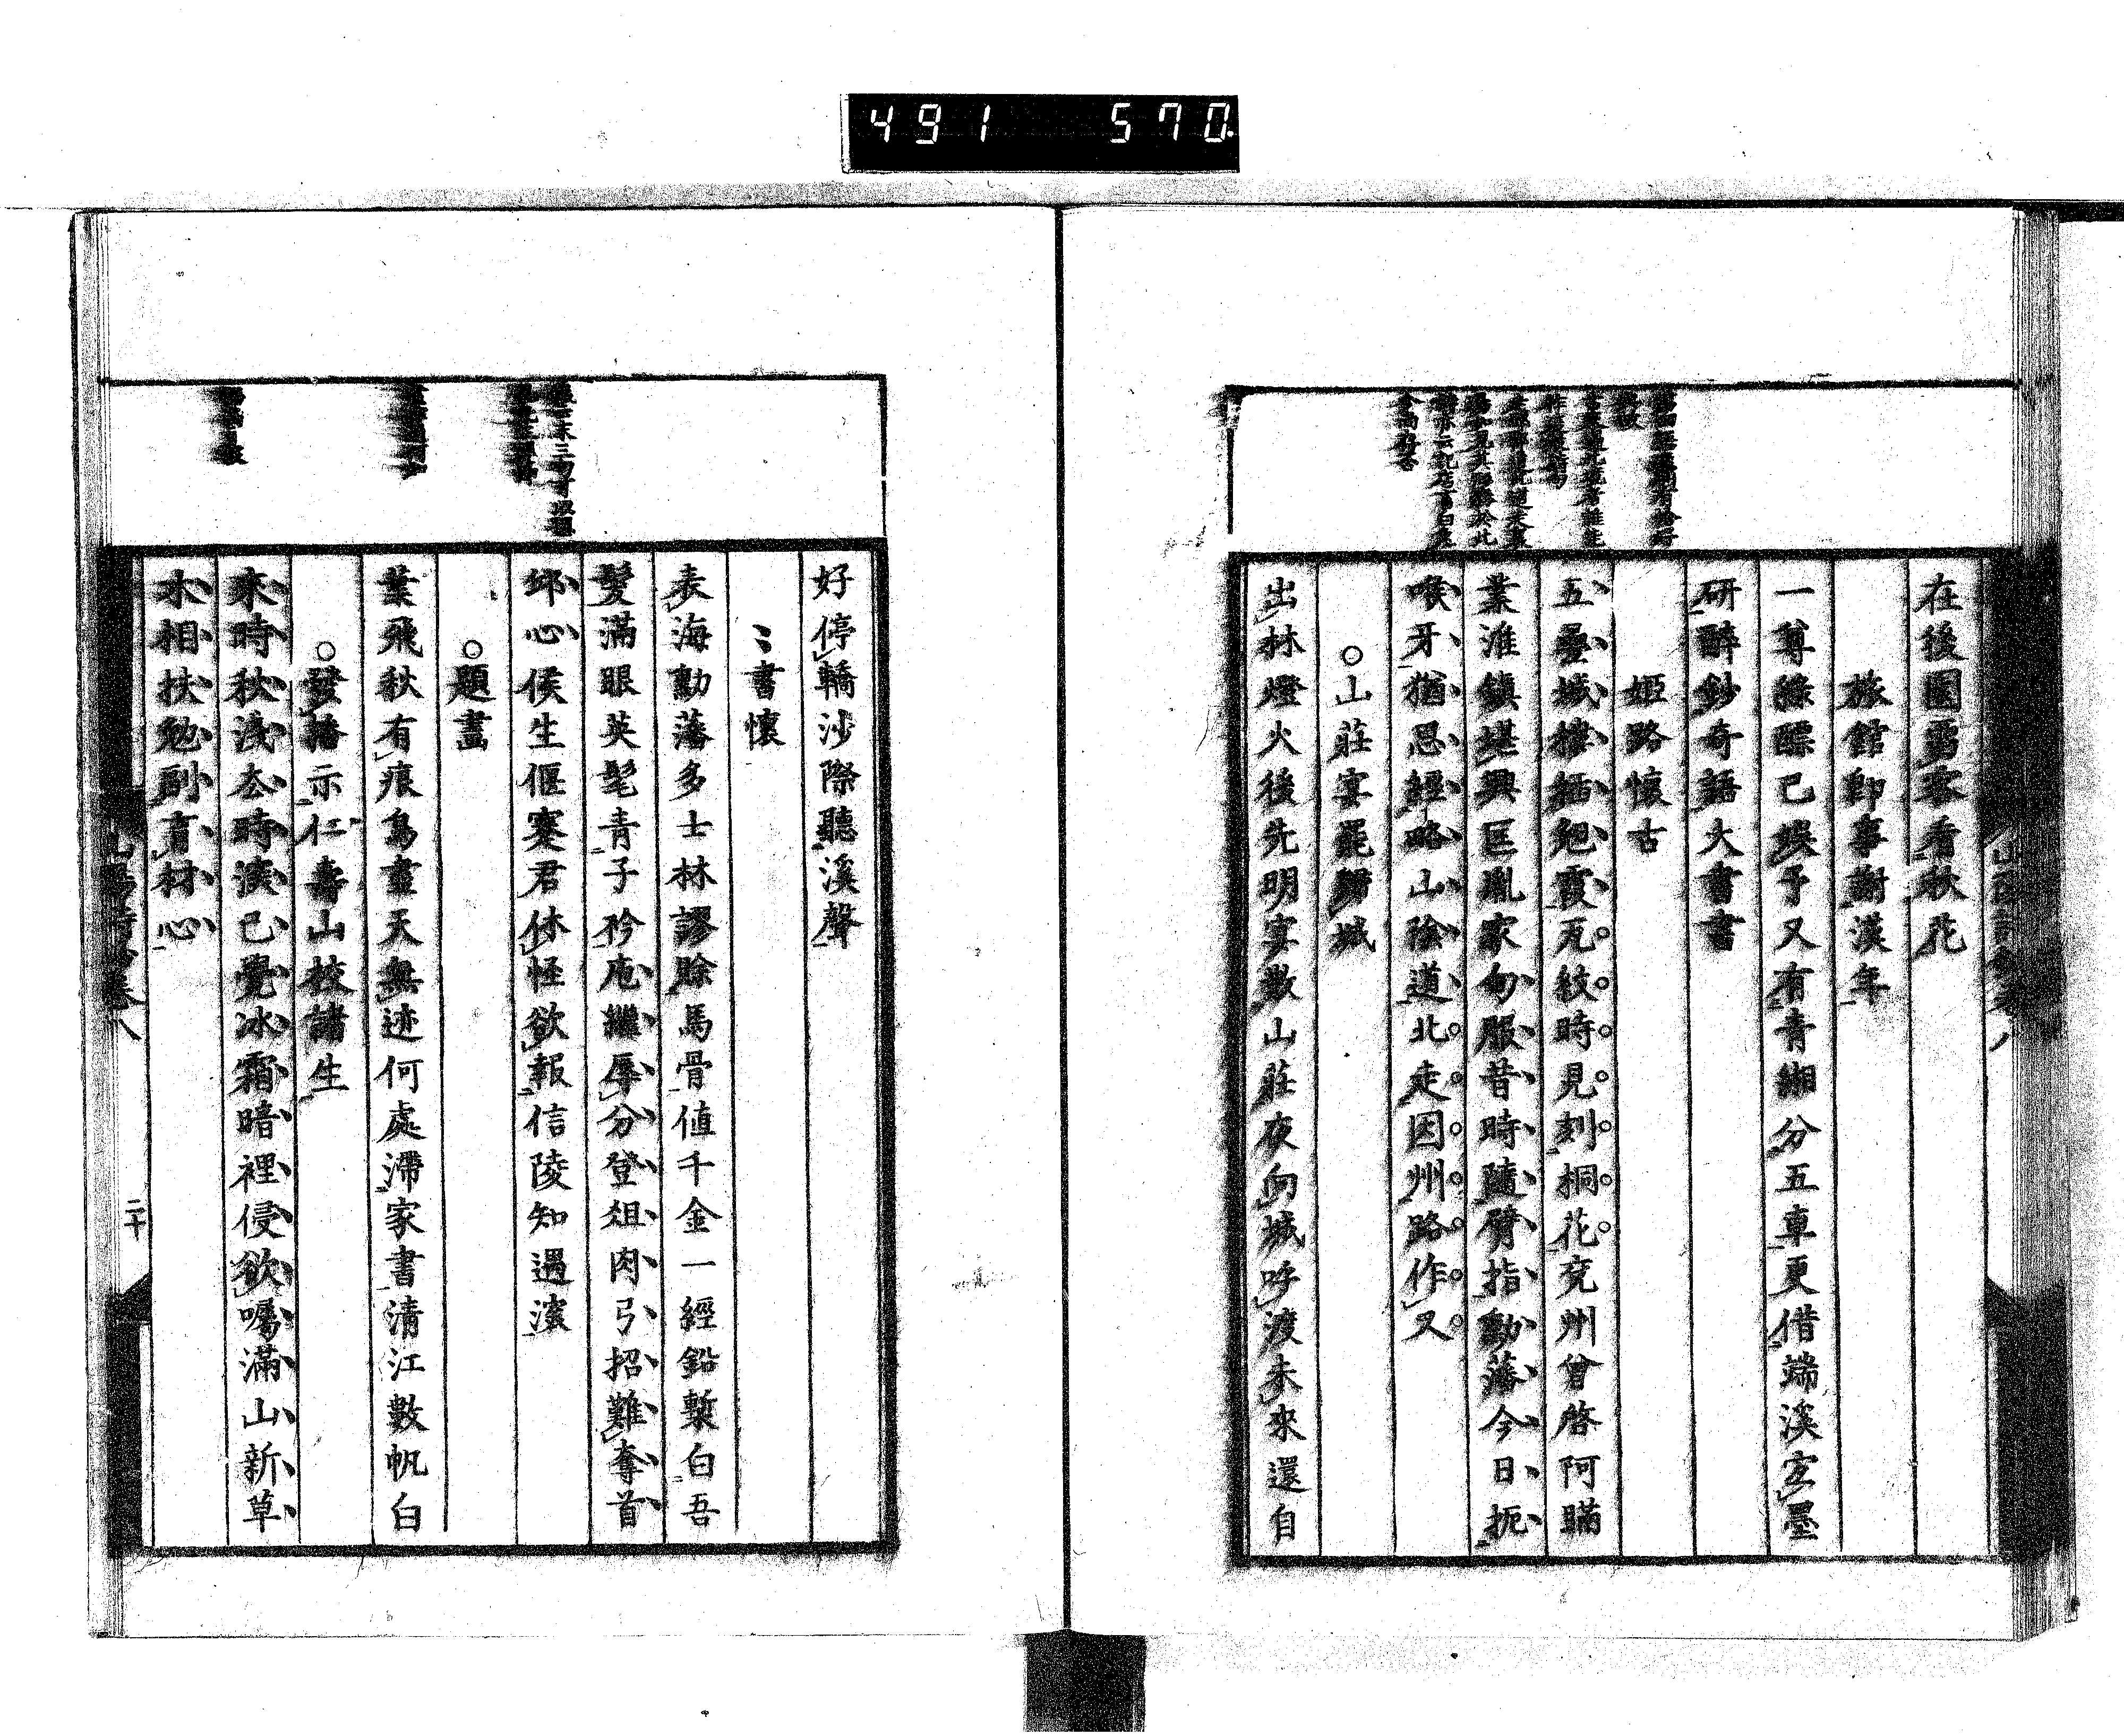 491 570.
在後園露深看秋花
旅館即事謝漢年
一尊綠醥已娛予又有青緗分五車更借端溪宓墨
研醉鈔奇語大書書
姬路懷古
五疊城樓插晚霞瓦紋時見刻桐花兗州曾啓阿瞞
業淮鎮堪興匡胤家甸服昔時隨臂指勳藩今日扼
喉牙猶思經略山陰道北走因州路作叉
山莊宴罷歸城
出林燈火後先明宴散山莊夜向城呼渡未來還自
好停轎沙際聽溪聲
書懷
表海勳藩多士林謬賒馬骨値千金一經鉛槧白吾
髮滿眼英髦青子衿庖繼辱分登俎肉弓招難奪首
邱心侯生偃蹇君休怪欲報信陵知遇深
題畫
葉飛秋有痕鳥盡天無迹何處滯家書淸江數帆白
發播示仁壽山校諸生
來時秋淺去時深已覺冰霜暗裡侵欲囑滿山新草
木相扶勉副育材心
山陽詩鈔卷八
二十